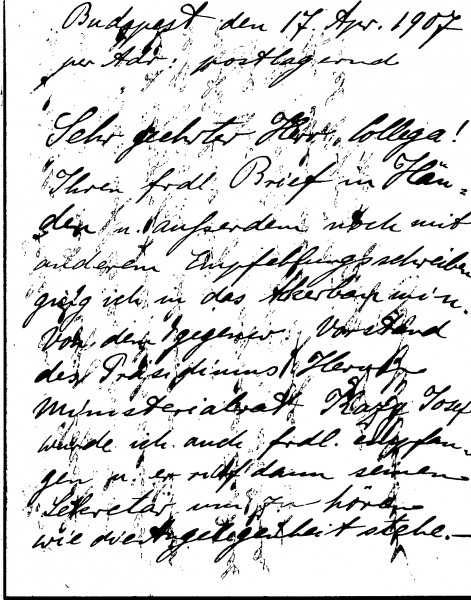 Budapest den 17. Apr. 1907
per Adr: postlagernd
Sehr geehrter Herr Collega!
Ihren frdl Brief in Hän=
den u. außerdem noch mit
anderem Empfehlungsschreiben
ging ich in das Akerbau min.
Von dem gegenw. Vorstand
des Präsidiums Herrn
Ministerialrat Kazy Josef
wurde ich auch frdl. empfan-
gen u. er rief dann seinen
Sekretär um zu hören
wie die Angelegenheit stehe.—